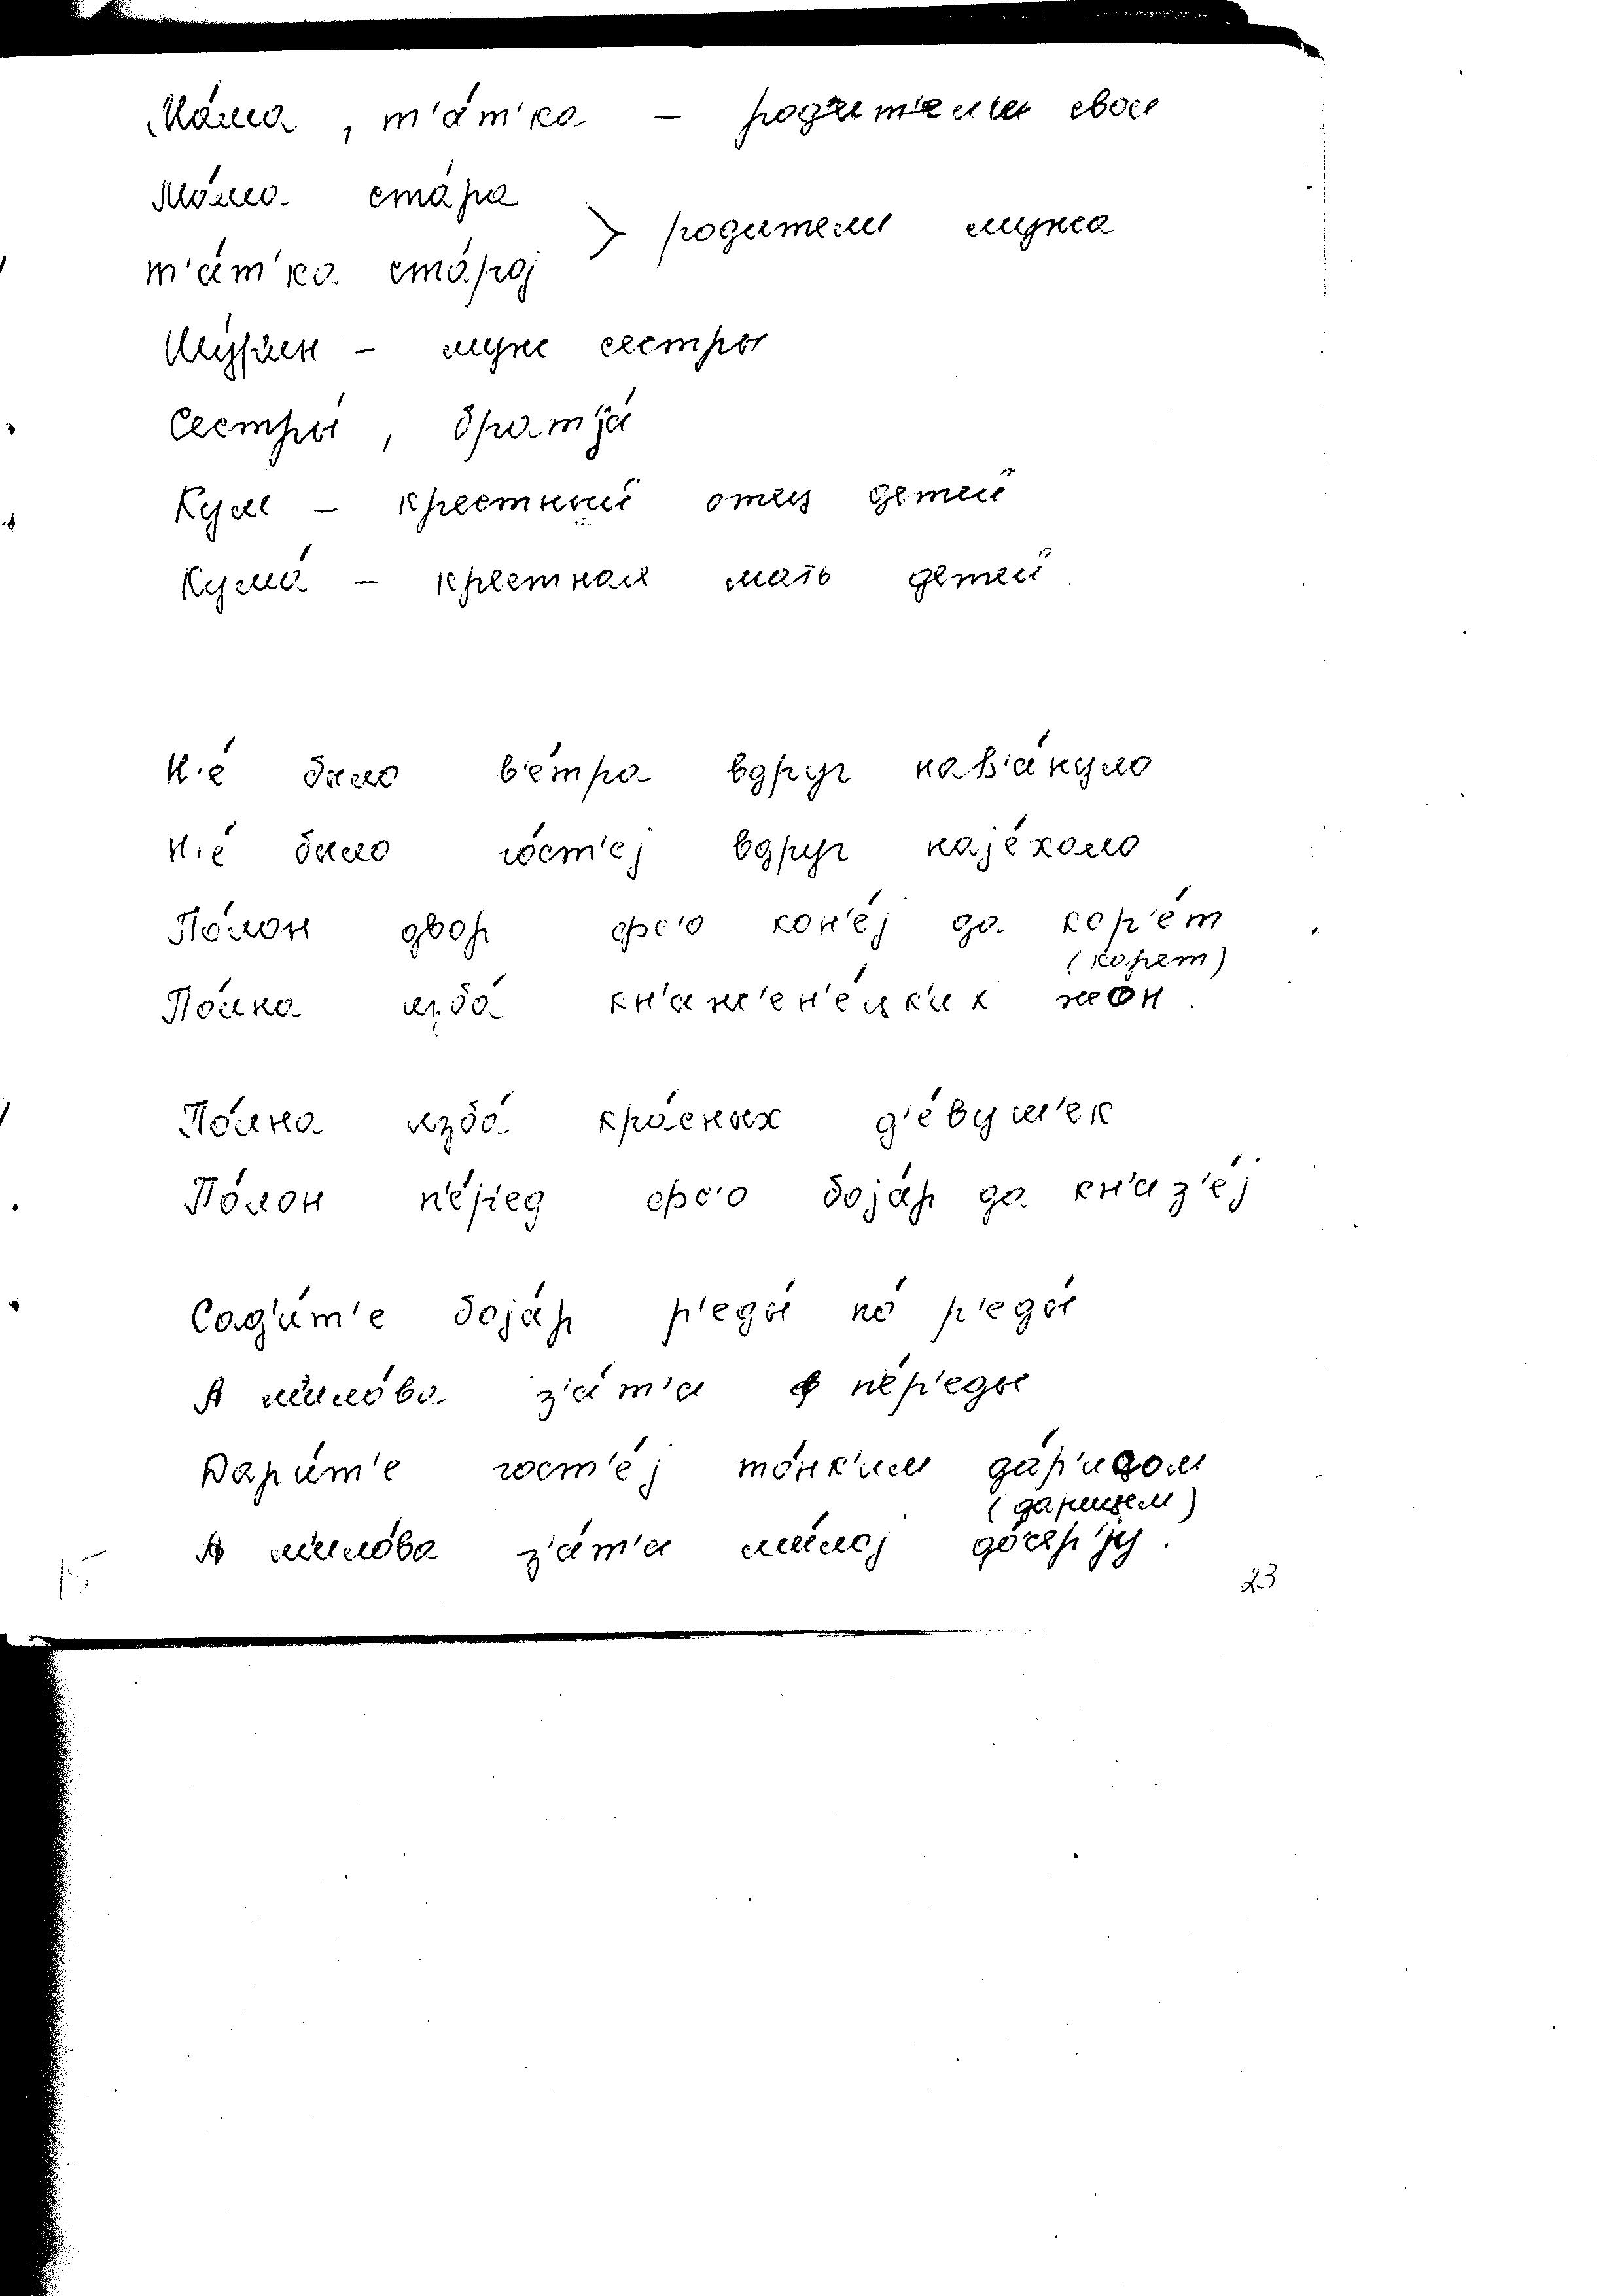 Ма́ма , т'а́т'ка – родители свои
Ма́ма ста́ра
> родители мужа
т'а́т'ка ста́рој
Шу́р'ин – муж сестры
Сестры́ , брат'jа́
Кум – крестный отец детей
Кума́ – крестная мать детей.
Н'е́ было в'е́тра вдруг нав'а́нуло
Н'е́ было го́ст'еј вдруг наје́хало
По́лон двор фс'о кон'е́ј да кор'е́т
(карет)
По́лна изба́ кн'аж'ен'е́цк'их жон.
По́лна изба́ кра́сных д'е́вуш'ек
По́лон п'е́р'ед фс'о боја́р да кн'аз'е́ј
Сад'и́т'е боја́р р'еды́ по́ р'еды́
А м'ило́ва з'а́т'а ф п'е́р'еды
Дари́т'е гост'е́ј то́нк'им да́р'иџом
(дарицем)
А м'ило́ва з'а́т'а м'и́лој до́чер'jу.
15
23